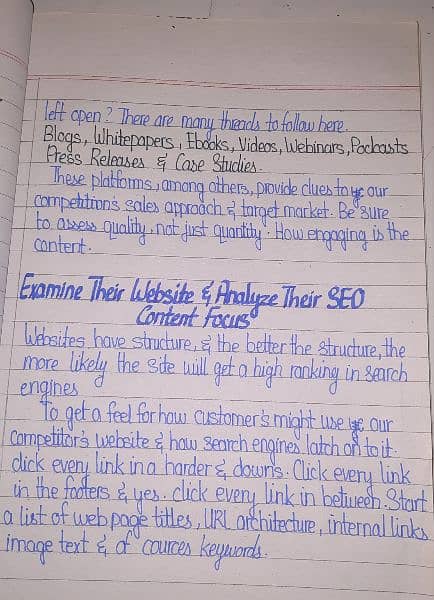 left open? There are many threads to follow here.
Blogs, Whitepapers, Ebooks, Videos, Webinars, Podcasts
Press Releases & Case Studies.
These platforms, among others, provide clues to ye our
competition's sales approach & target market. Be sure
to assess quality, not just quantity. How engaging is the
content.
Examine Their Website & Analyze Their SEO
Content Focus
Websites have structure, & the better the structure, the
more likely the site will get a high ranking in search
engines
To get a feel for how customer's might use ye our
competitor's website & how search engines latch on to it.
click every link in a harder & down's. Click every link
in the footers & yes. click every link in between. Start
a list of web page titles, URL architecture, internal links
image text & of cources keywords.